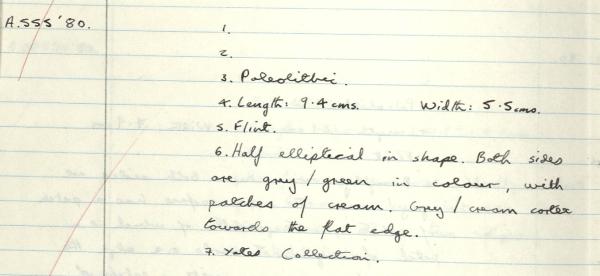 A.SSS '80.
1.
2.
3. Paleolithic.
4. Length: 9.4 cms. Width: 5.5 cms.
5. Flint.
6. Half elliptical in shape. Both sides
are grey / green in colour, with
patches of cream. Grey / cream cortex
towards the flat edge.
7. Yates Collection.